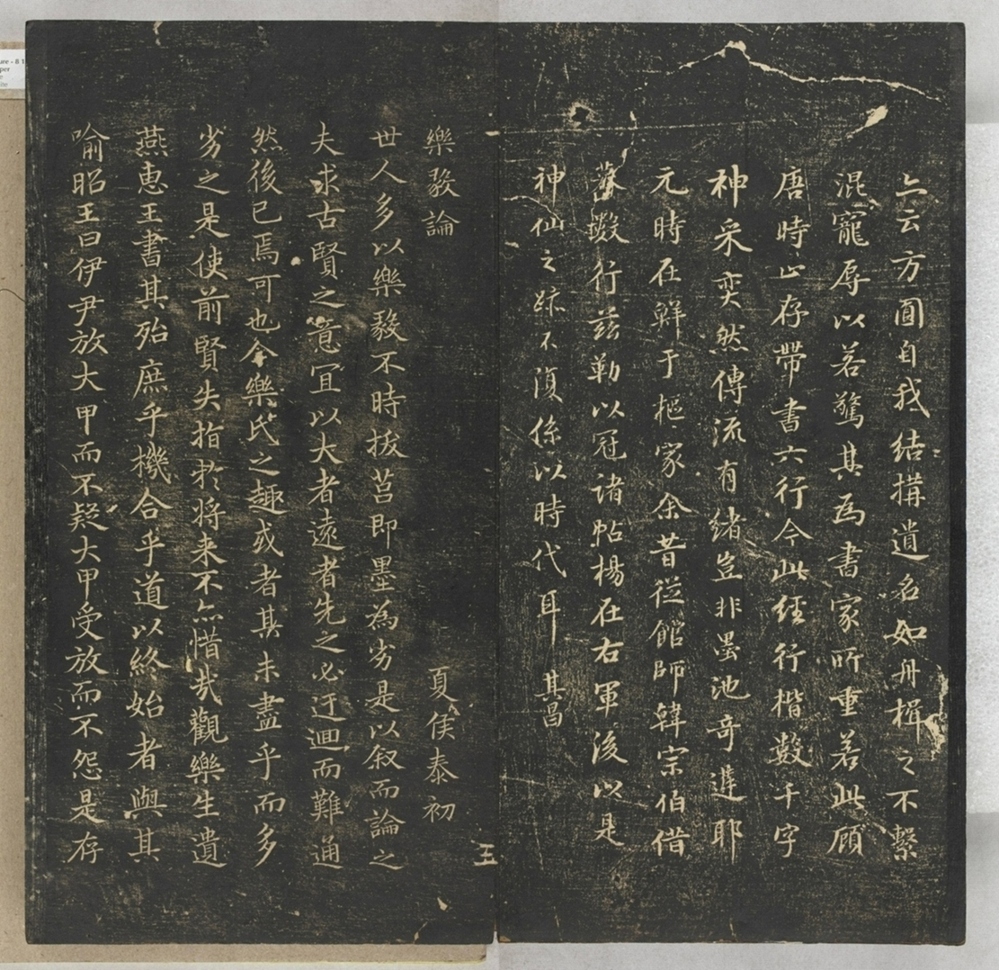 上云方圓自我結搆遺名如舟楫之不繫
混寵辱以若驚其為書家所重若此顧
唐時止存帶書六行今此經行楷數千字
神采奕然傳流有緒豈非墨池奇遘耶
元時在鮮于樞家余昔從館師韓宗伯借
摹數行茲勒以冠諸帖楊在右軍後以是
神仙之跡不復係以時代耳 其昌
樂毅論
夏侯泰初
世人多以樂毅不時拔莒即墨為劣是以叙而論之
夫求古賢之意宜以大者遠者先之必迂迴而難通
然後已焉可也今樂氏之趣或者其未盡乎而多
劣之是使前賢失指於将来不亦惜哉觀樂生遺
燕惠王書其殆庶乎機合乎道以終始者與其
喻昭王曰伊尹放大甲而不疑大甲受放而不怨是存
五